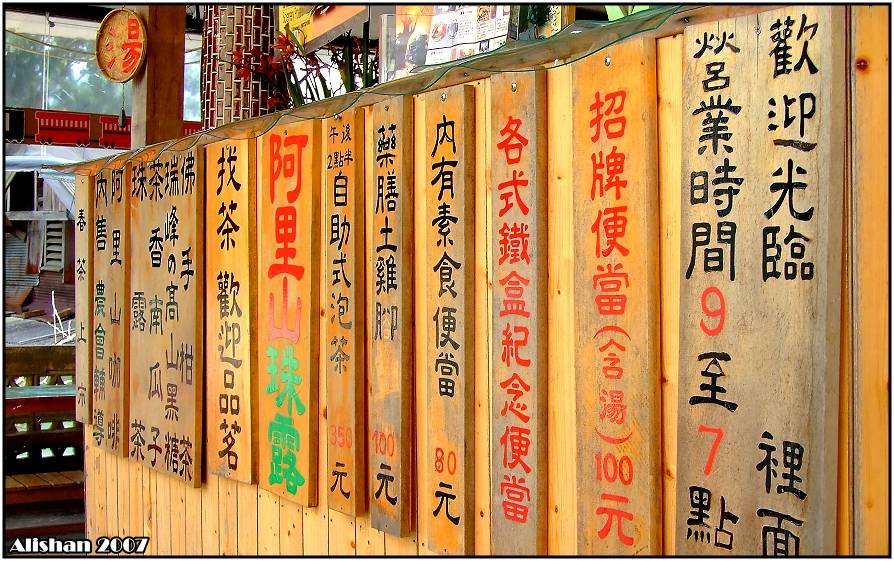 歡迎光臨 裡面
營業時間9至7點
招牌便當(含湯)100元
各式鐵盒紀念便當
內有素食便當 80元
藥膳土雞腳 100元
午後
2點半
自助式泡茶 350元
阿里山珠露
找茶 歡迎品茗
佛手柑茶
瑞峰の高山黑糖
茶香南瓜子
珠露茶
阿里山咖啡
內售 農會輔導
春茶上市
湯
Alishan 2007